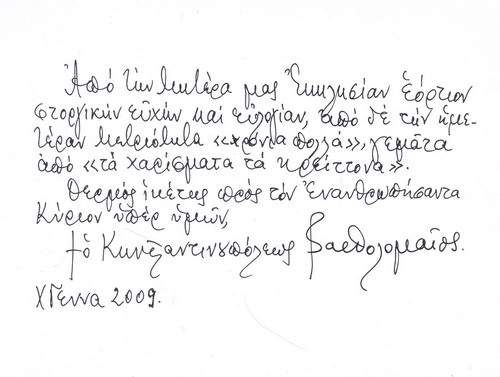 Ἀπό τήν Μητέρα μας Ἐκκλησίαν ἑόρτιον
στοργικήν εὐχήν καί εὐλογίαν, ἀπό δέ τήν ἡμε-
τέραν Μετριότητα «χρόνια πολλά», γεμᾶτα
ἀπό «τά χαρίσματα τά κρείττονα».
Θερμός ἱκέτης πρός τόν Ἐνανθρωπήσαντα
Κύριον ὑπέρ ὑμῶν,
† ὁ Κωνσταντινουπόλεως Βαρθολομαῖος.
ΧΓεννα 2009.